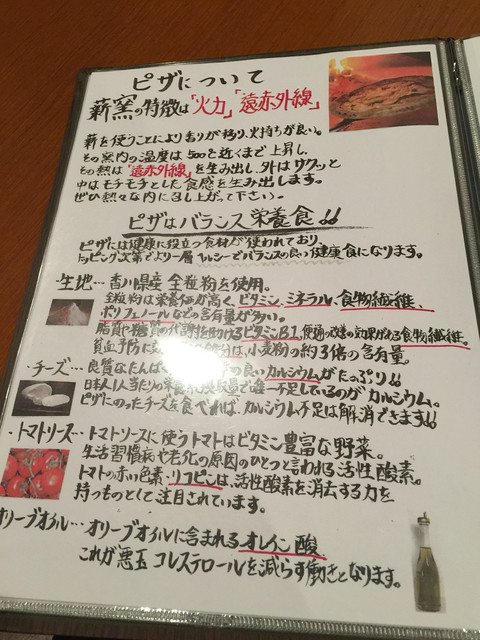 ピザについて
薪窯の特徴は「火力」「遠赤外線」
薪を使うことにより香りが移り、火持ちが良い。
その窯内の温度は500℃近くまで上昇し、
その熱は「遠赤外線」を生み出し外はサクッと
中はモチモチとした食感を生み出します。
ぜひ熱々な内に召し上って下さい。
ピザはバランス栄養食!!
ピザには健康に役立つ食材が使われており、
トッピング次第でより一層ヘルシーでバランスの良い健康食になります。
・生地…香川県産全粒粉を使用。
全粒粉は栄養価が高く、ビタミン、ミネラル、食物繊維、
ポリフェノールなどの含有量が多い。
脂質や糖質の代謝を助けるビタミンB1、便通の改善の効果がある食物繊維。
貧血予防に 分は、小麦粉の約3倍の含有量。
・チーズ…良質なたんぱく の良いカルシウムがたっぷり!!
日本人1人当たりの栄養 取量で唯一不足しているのがカルシウム。
ピザにのったチーズを食べれば、カルシウム不足は解消できます!!
・トマトソース…トマトソースに使うトマトはビタミン豊富な野菜。
生活習慣病や老化の原因のひとつと言われる活性酸素。
トマトの赤い色素・リコピンは、活性酸素を消去する力を
持つものとして注目されています。
オリーブオイル…オリーブオイルに含まれるオレイン酸、
これが悪玉コレステロールを減らす働きとなります。